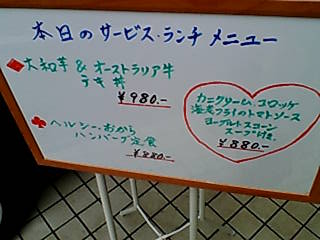 本日のサービス・ランチ メニュー
大和芋 & オーストラリア牛
テキ丼
¥980.-
ヘルシー・おから
ハンバーグ定食
¥880.-
カニクリーム、コロッケ
海老フライのトマトソース
ヨーグルト・スコーン
スープ付き
¥880.-